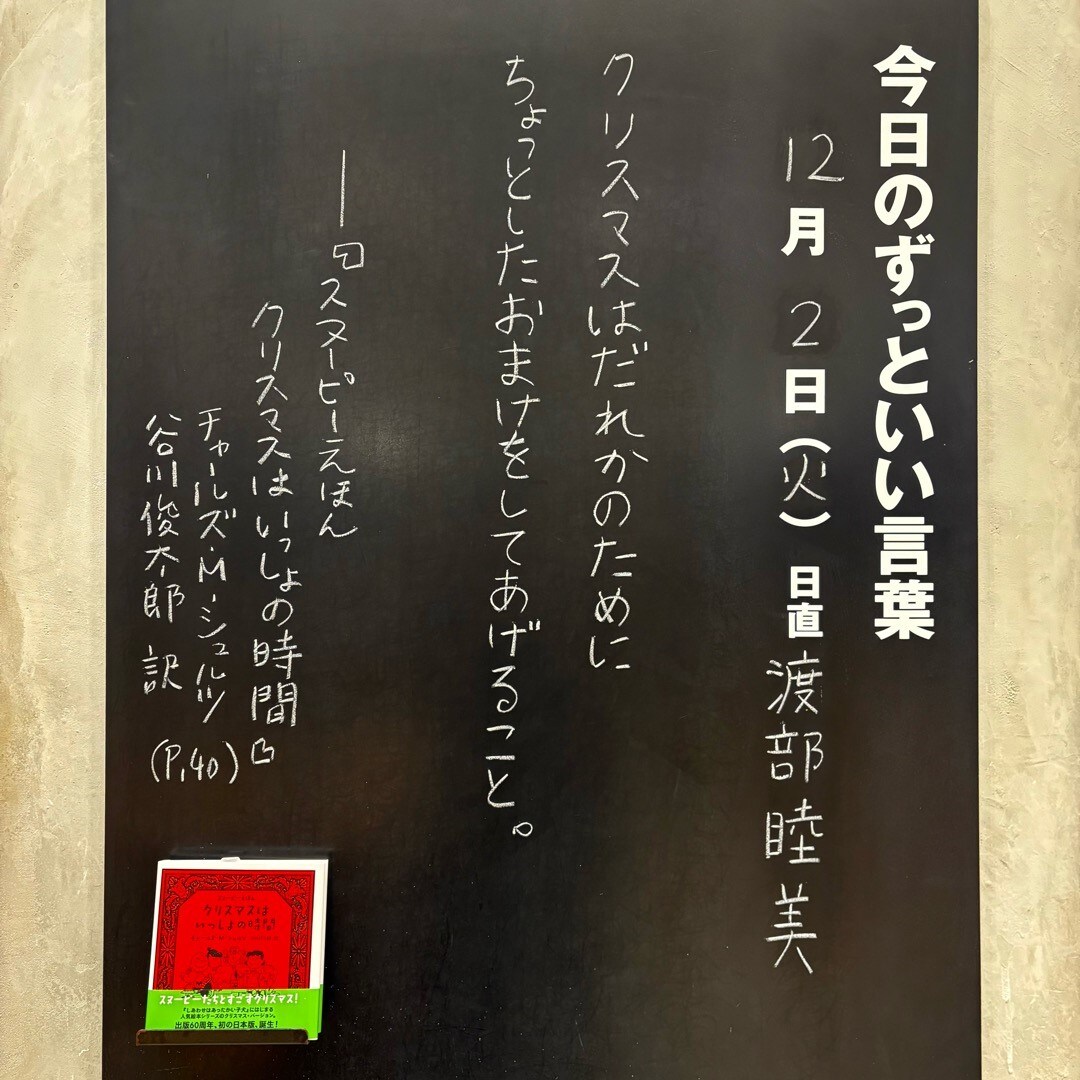 今日のずっといい言葉
12月2日(火) 日直 渡部睦美
クリスマスはだれかのために
ちょっとしたおまけをしてあげること。
―『スヌーピーえほん
クリスマスはいっしょの時間』
チャールズ・M・シュルツ
谷川俊太郎 訳 (P.40)
クリスマスは
いっしょの時間
スヌーピーたちとすごすクリスマス!
『しあわせはあったかい子犬』にはじまる
人気絵本シリーズのクリスマス・バージョン。
出版60周年、初の日本版、誕生!